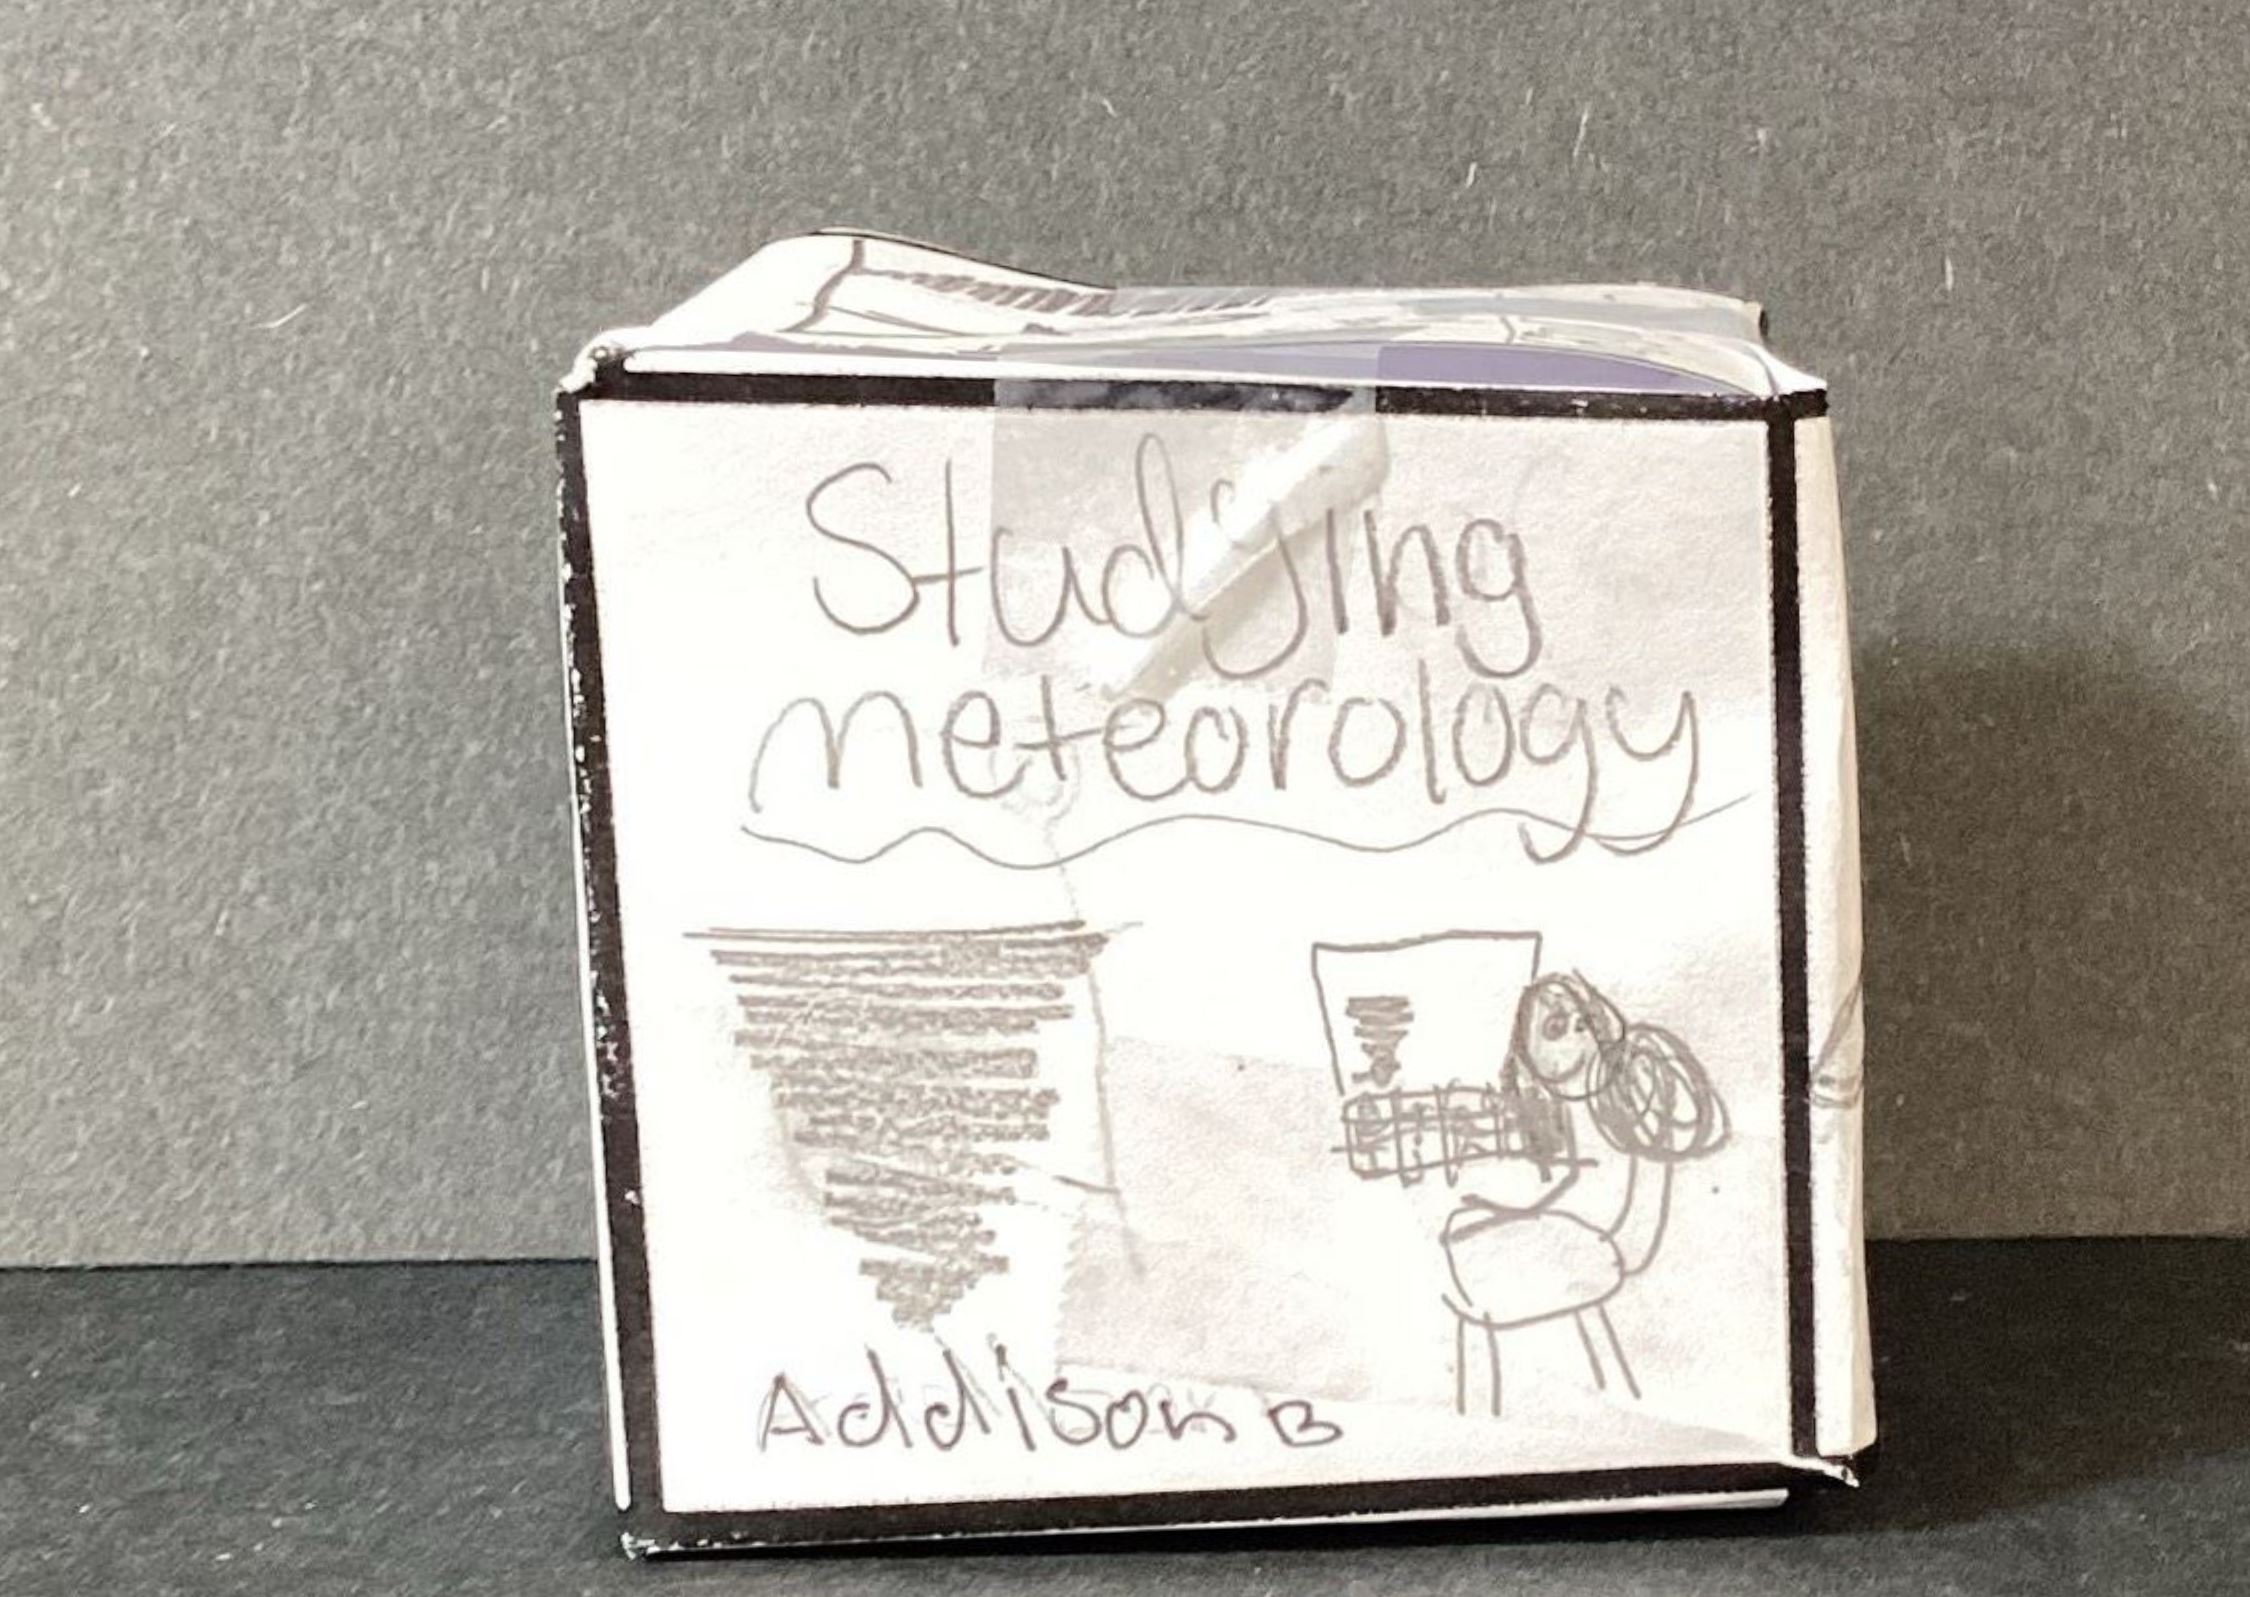 Studying
meteorology
Addison B